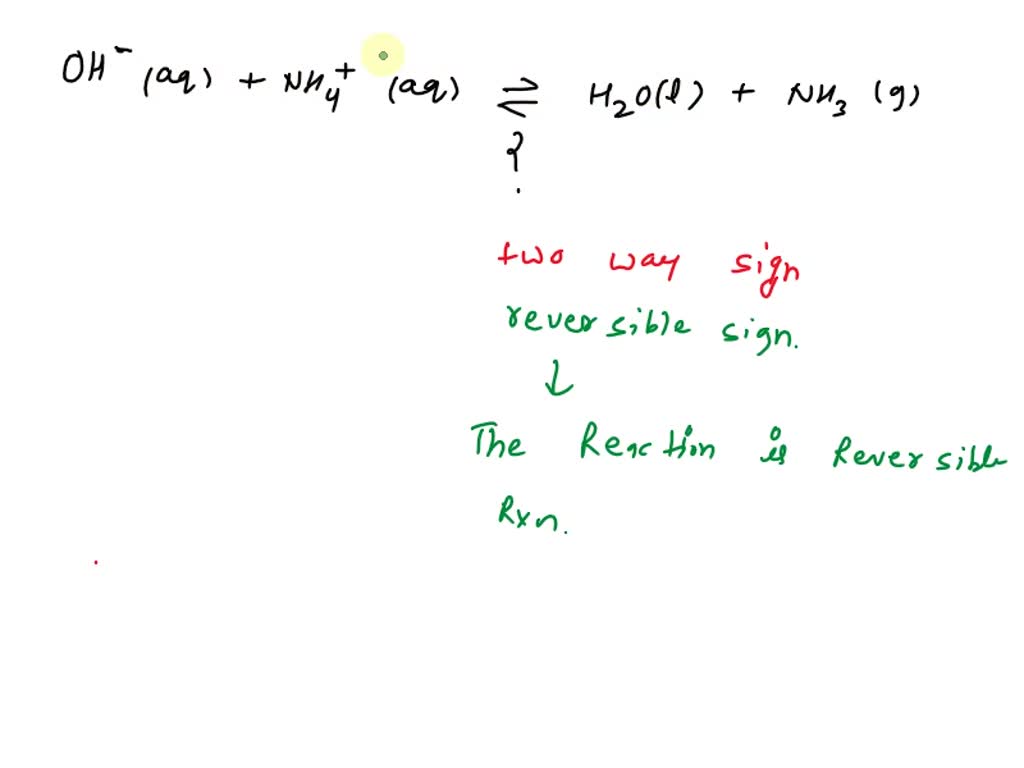 OH⁻ (aq) + NH₄⁺ (aq) ⇌ H₂O(l) + NH₃ (g)
?
two way sign
reversible sign.
↓
The Reaction is Reversible
Rxn.